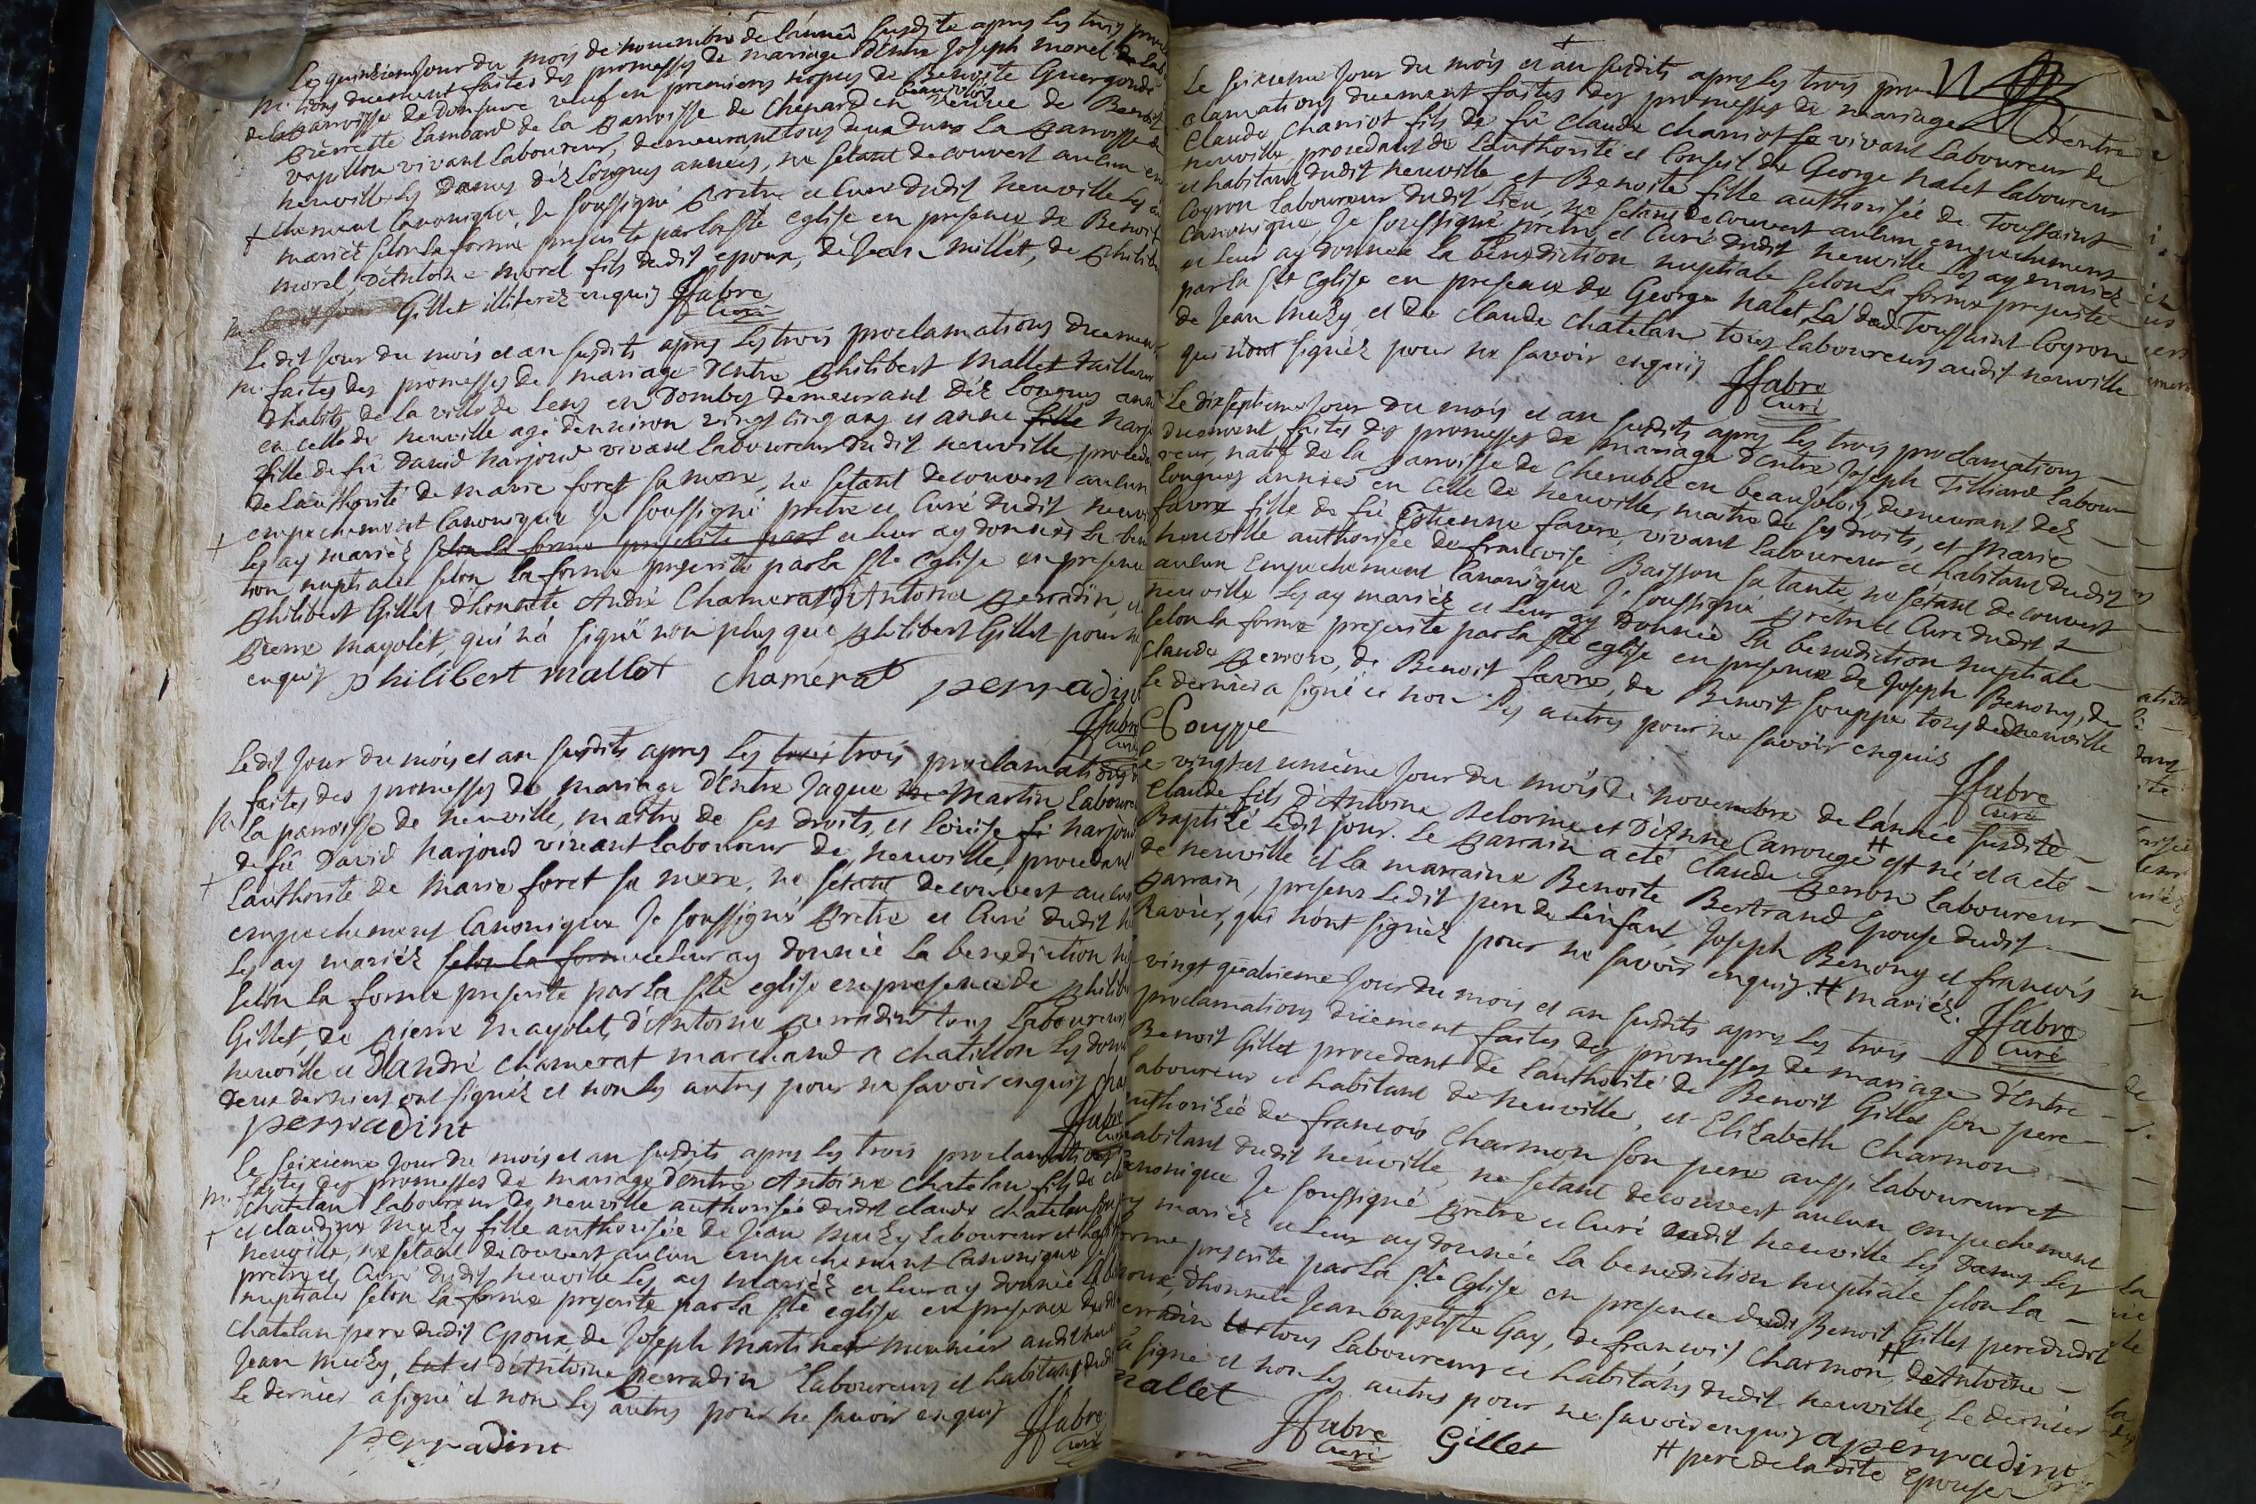 Le quinzieme Jour du mois de novembre de lánnée susdite apres les trois
m. tions duement faites des promesses de mariage d'Entre Joseph morel
de la parroisse de Dompure veuf en premieres nopces de Benoite Guergonde
pierrette Lambard de la parroisse de Chenard en beaujolois veuve de Benoit
vapillon vivant laboureur, demeurant tous deux dans la parroisse de
neuville les Dames dés longues années, ne sétant decouvert aucun em
+ chement Canonique Je soussigné prêtre et Curé dudit neuville les ai
mariés selon la forme prescrite par la ste eglise en presence de Benoit
morel, d'Antoine morel fils dudit epoux, de Jean millet, de philib
Gillet illiterés enquis ffabre
Curé
Ledit Jour du mois et an susdits apres les trois proclamations duemen
m. faites des promesses de mariage d'Entre philibert Mallet tailleur
dhabits de la ville de Lens en Dombes demeurant dés longues ann
en celle de neuville agé denviron vingt cinq ans et anne fille harj
fille de fû David harjoud vivant laboureur dudit neuville proceda
de lauthorité de marie foret sa mere, ne sétant decouvert aucun
empechement Canonique Je soussigné prêtre et Curé dudit neuv
+ les ay mariés selon la forme prescrite part et leur ay donnée la béné
tion nuptiale selon la forme prescrite par la ste eglise en presen
philibert Gillet d'honnête André Chamerat d'Antoine perradin, et
pierre mayolet, qui n'a signé non plus que philibert Gillet pour ne
enquis philibert mallet chamérat perradin
ffabre
Curé
Ledit Jour du mois et an susdits apres les trois trois proclamations
faites des promesses de mariage d'Entre Jaque me Martin Laboure
m. la parroisse de neuville, maître de ses droits, et Loüise fi harjoud
de fû David harjoud vivant Laboureur de neuville, procedant
+ lauthorité de Marie foret sa mere, ne sétant decouvert aucun
empechement Canonique Je soussigné prêtre et Curé dudit ne
les ay mariés selon la form et leur ay donnée la benediction nu
selon la forme prescrite par la ste eglise en presence de philib
Gillet, de pierre mayolet, d'Antoine perradin tous laboureurs
neuville et d'André Chamerat marchand a chatillon les dont
deux derniers ont signés et non les autres pour ne savoir enquis cha
perradint ffabre
Curé
Le seixieme Jour du mois et an susdits apres les trois proclamations
m. faites des promesses de mariage d'entre Antoine chatelan fils de cla
chatelan laboureur de neuville authorisée dudit claude chatelan son
+ et claudine muzy fille authorisée de Jean muzy laboureur et habi
neuville, ne sétant decouvert aucun empechement Canonique Je
prêtre et Curé dudit neuville les ay mariés et leur ay donnée la be
nuptiale selon la forme prescrite par la ste eglise en presence dudit
chatelan pere dudit epoux, de Joseph martinet meunier audit neu
Jean muzy, tut et d'Antoine perradin laboureurs et habitans dudit
le dernier a signé et non les autres pour ne savoir enquis
perradint ffabre
Curé
+
Le seixieme Jour du mois et an susdits apres les trois pro
clamations duement faites des promesses de mariage d'entre
claude Chaniot fils de fû claude chaniot le vivant laboureur de
neuville procedant de lauthorité et Conseil de George Nalet laboureur
et habitant dudit neuville et Benoite fille authorisée de Toussaint
Coyron laboureur dudit lieu, ne sétant decouvert aucun empechement
Canonique, Je soussigné prêtre et Curé dudit neuville les ay mariés
et leur ay donnée la benediction nuptiale selon la forme prescrite
par la ste Eglise en presence de George nalet, La dud Toussaint Coyron
de Jean muzy, et de claude chatelan tous laboureurs audit neuville
qui n'ont signés pour ne savoir enquis
ffabre
Curé
Le dixseptieme Jour du mois et an susdits apres les trois proclamations
duement faites des promesses de mariage d'Entre Joseph Tilliard labou
reur, natif de la parroisse de Cheruble en beaujolois, demeurant dés
longues années en celle de neuville, maitre de ses droits, et Marie
favre fille de fû Etienne favre, vivant laboureur et habitant dudit
neuville authorisée de francoise Baisson sa tante, ne sétant decouvert
aucun Empechement Canonique Je soussigné prêtre et Curé dudit
neuville les ay mariés et leur ay donnée la benediction nuptiale
selon la forme prescrite par la ste eglise en presence de Joseph Benony, de
claude perron, de Benoit favre, de Benoit souppe tous dud neuville
le dernier a signé et non les autres pour ne savoir enquis
Souppe ffabre
Curé
Le vingt et unieme Jour du mois de novembre de lánnée susdite
Claude fils d'Antoine Belorme et d'Anne Carrouge # est né et a eté
Baptizé ledit jour. Le parrain a eté claude perron laboureur
de neuville et la marraine Benoite Bertrand Epouse dudit
parrain, presens ledit pere de lénfant, Joseph Benony et francois
Ravier, qui nónt signés pour ne savoir enquis. # mariés. ffabre
Curé
vingt quatrieme Jour du mois et an susdits apres les trois
proclamations düement faites des promesses de mariage d'Entre
Benoit Gillet procedant de lauthorité de Benoit Gillet son pere
laboureur et habitant de neuville, et Elizabeth Charmon
authorizée de francois Charmon son pere aussi laboureur et
habitant dudit neuville, ne sétant decouvert aucun empechement
Canonique Je soussigné prêtre et Curé dudit neuville les dames les
ay mariés et leur ay donnée la benediction nuptiale selon la
forme prescrite par la ste Eglise en presence dudit Benoit Gillet pere dudit
epoux, d'honnete Jean baptiste Gay, de francois Charmon #, d'Antoine
perradin les tous laboureurs et habitans dudit neuville, le dernier
a signé et non les autres pour ne savoir enquis aperradint
ffabre
Curé
Gillet
# pere de la dite Epouse